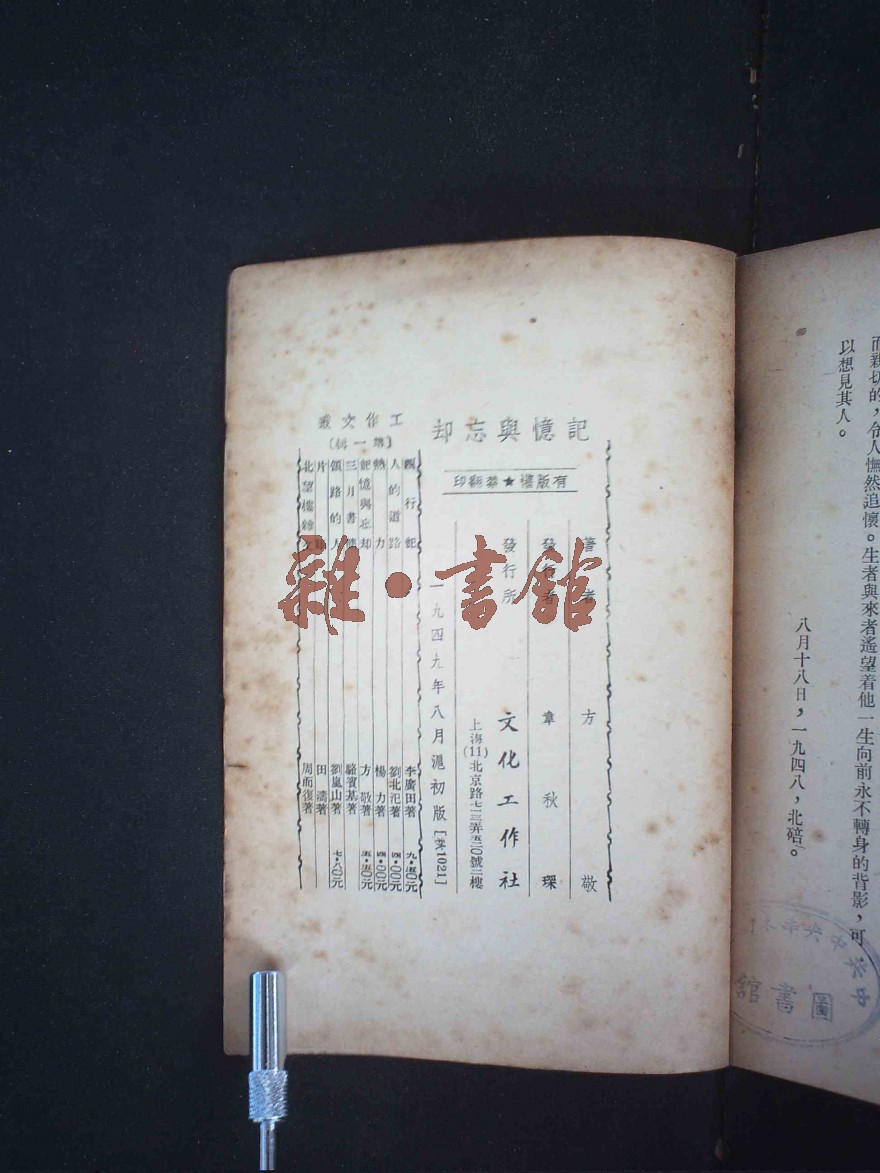 而親切的，令人憮然追懷。生者與來者遙望着他一生向前永不轉身的背影，可
以想見其人。
八月十八日，一九四八，北碚。
圖書館
記憶與忘却
有版權★禁翻印
著者 方敬
發行者 章秋琛
發行所 文化工作社
上海(11)北京路七三弄五〇號三樓
一九四九年八月滬初版[莽1021]
工作文叢
〔第一輯〕
西行記 李廣田著 九·五〇元
人的道路 劉北汜著 四·〇〇元
熱力 楊力著 四·〇〇元
記憶與忘却 方敬著 五·五〇元
三月書簡 駱賓基著
領路的人 劉嵐山著 七·八〇元
田濤著
北望樓雜文 周而復著
雜·書館